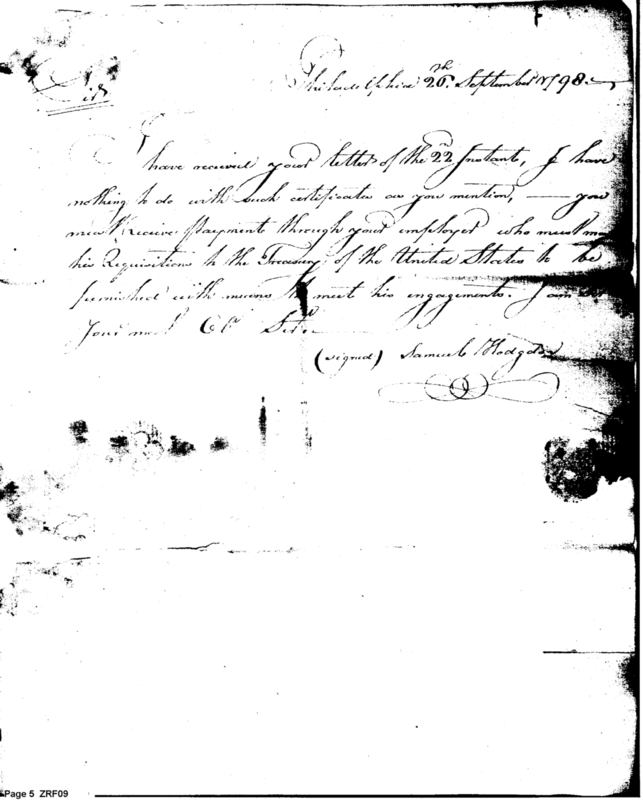 Philadelphia 26th. September 1798.
Sir
I have received your letter of the 22nd Instant, I have
nothing to do with such certificates as you mention, — you
must Receive Payment through your employer who must
his Requisition to the Treasury of the United States to be
furnished with means to meet his engagements. I am
Your Serv.
(signed) Samuel Hodgdon
Page 5 ZRF09